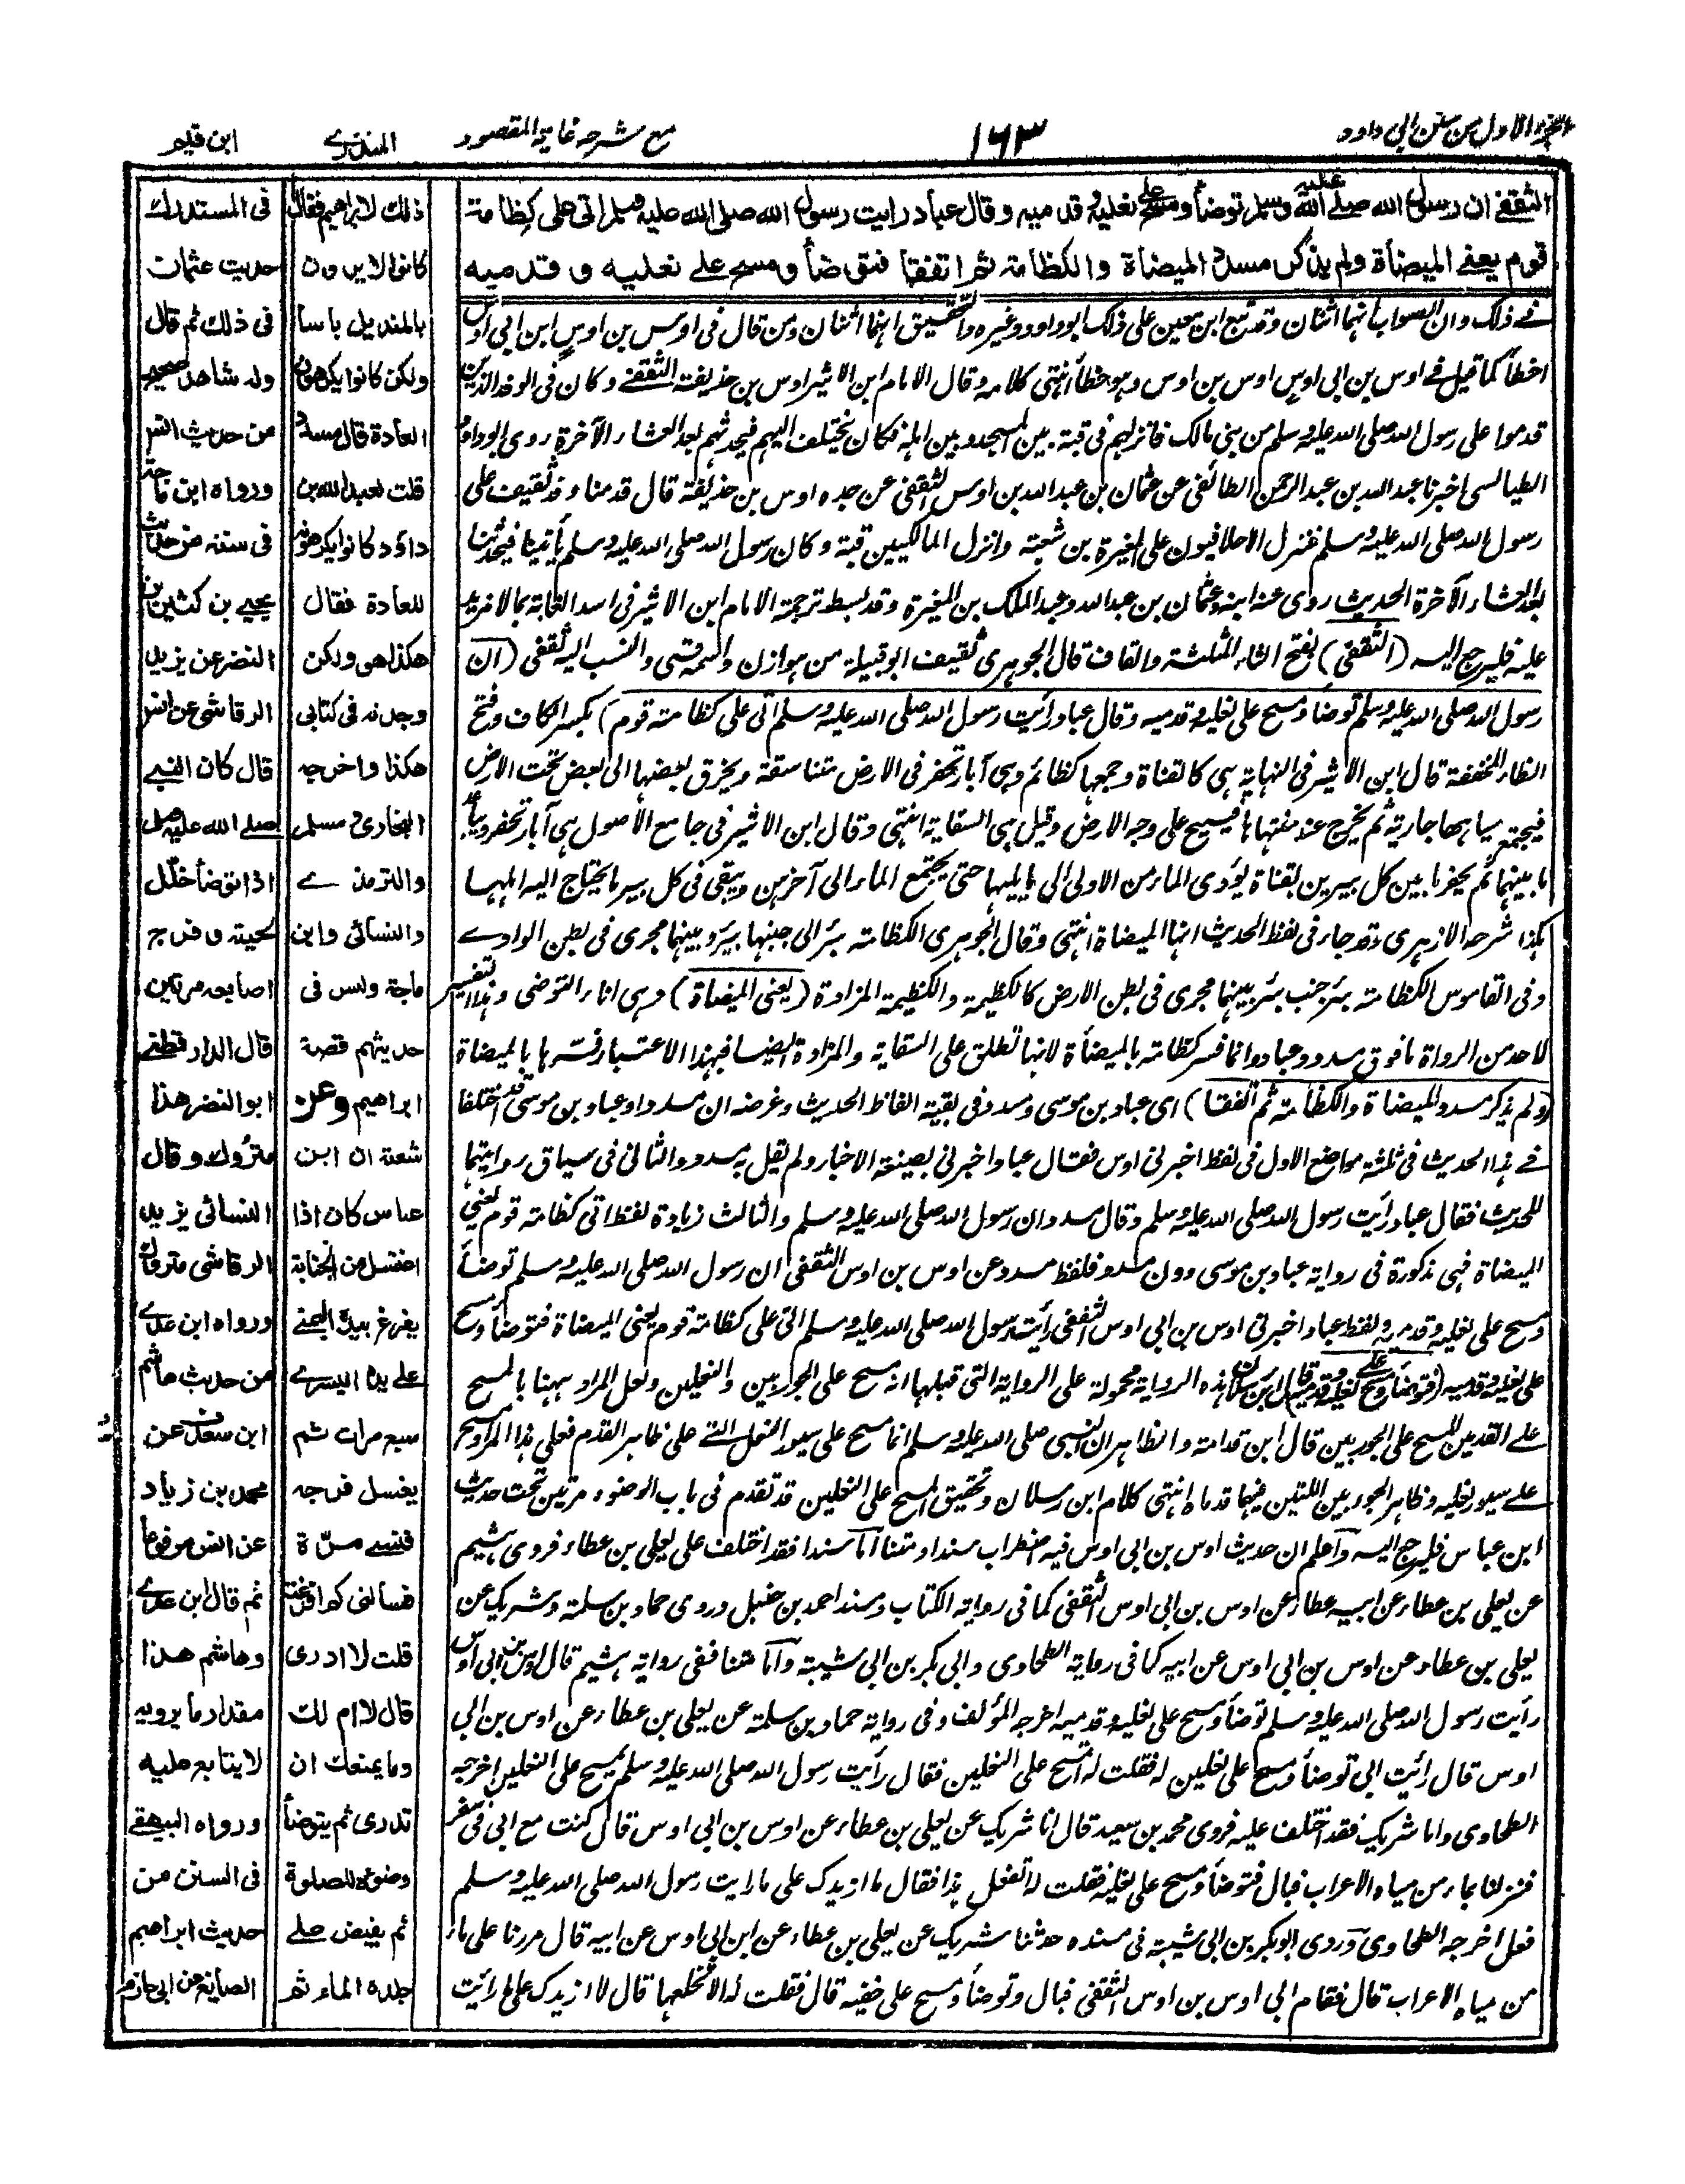 الجزء الاول من سنن ابي داود
١٦٣
مع شرحه غاية المقصود
المنذري
ابن قيم
الثقفي ان رسول الله صلى الله عليه وسلم توضأ ومسح على نعليه وقدميه وقال عباد رايت رسول الله صلى الله عليه وسلم اتى على كظامة
قوم يعني الميضأة ولم يذكر مسدد الميضاة والكظامة ثم اتفقا فتوضأ ومسح على نعليه وقدميه
في ذلك وان الصواب انهما اثنان وقد تبع ابن معين على ذلك ابوداود وغيره والتحقيق انهما اثنان ومن قال في اوس بن اوس ابن ابي اوس
اخطأ كما قيل في اوس بن ابي اوس اوس بن اوس وهو خطأ انتهى كلامه وقال الامام ابن الاثير اوس بن حذيفة الثقفي وكان في الوفد الذين
قدموا على رسول الله صلى الله عليه وسلم من بني مالك فانزلهم في قبة بين المسجد وبين اهله فكان يختلف اليهم فيحدثهم بعد العشاء الآخرة روى ابوداود
الطيالسي اخبرنا عبد الله بن عبد الرحمن الطائفي عن عثمان بن عبد الله بن اوس الثقفي عن جده اوس بن حذيفة قال قدمنا وفد ثقيف على
رسول الله صلى الله عليه وسلم فنزل الاحلافيون على المغيرة بن شعبة وانزل المالكيين قبة وكان رسول الله صلى الله عليه وسلم يأتينا فيحدثنا
بعد العشاء الآخرة الحديث روى عنه ابنه وعثمان بن عبد الله وعبد الملك بن المغيرة وقد بسط ترجمة الامام ابن الاثير في اسد الغابة بما لا مزيد
عليه فليرجع اليه (الثقفي) بفتح الثاء المثلثة والقاف قال الجوهري ثقيف ابو قبيلة من هوازن واسمه قسي والنسب اليه ثقفي (ان
رسول الله صلى الله عليه وسلم توضأ ومسح على نعليه وقدميه وقال عباد رأيت رسول الله صلى الله عليه وسلم اتى على كظامة قوم) بكسر الكاف وفتح
الظاء المخففة قال ابن الاثير في النهاية هي كالقناة وجمعها كظائم وهي آبار تحفر في الارض متناسقة ويخرق بعضها الى بعض تحت الارض
فيجتمع مياهها جارية ثم يخرج عند منتهاها فيسيح على وجه الارض وقيل هي السقاية انتهى وقال ابن الاثير في جامع الاصول هي آبار تحفر ويباعد
ما بينهما ثم يحفر ما بين كل بيرين بقناة يؤدي الماء من الاولى الى ما يليها حتى يجتمع الماء الى آخرهن ويبقى في كل بير ما يحتاج اليه اهلها
هكذا شرحه الازهري وقد جاء في لفظ الحديث انها الميضاة انتهى وقال الجوهري الكظامة بئر الى جنبها بير وبينهما مجرى في بطن الوادي
وفي القاموس الكظامة بئر جنب بئر بينهما مجرى في بطن الارض كالكظيمة والكظيمة المزادة (يعني الميضاة) وهي اناء التوضي وهذا التفسير
لاحد من الرواة ما فوق مسدد وعباد وانما فسر كظامة بالميضأة لانها تطلق على السقاية والمزادة ايضا فبهذا الاعتبار فسرها بالميضاة
(ولم يذكر مسدد الميضاة والكظامة ثم اتفقا) اى عباد بن موسى ومسدد في بقية الفاظ الحديث وغرضه ان مسددا وعباد بن موسى قد اختلفا
في هذا الحديث في ثلثة مواضع الاول في لفظ اخبرني اوس فقال عباد اخبرني بصيغة الاخبار ولم يقل به مسدد والثاني في سياق روايتهما
للحديث فقال عباد رأيت رسول الله صلى الله عليه وسلم وقال مسدد ان رسول الله صلى الله عليه وسلم والثالث زيادة لفظ اتى كظامة قوم يعني
الميضاة فهي مذكورة في رواية عباد بن موسى دون مسدد فلفظ مسدد عن اوس بن اوس الثقفي ان رسول الله صلى الله عليه وسلم توضأ
ومسح على نعليه وقدميه ولفظ عباد اخبرني اوس بن ابي اوس الثقفي رأيت رسول الله صلى الله عليه وسلم اتى على كظامة قوم يعني الميضاة فتوضأ ومسح
على نعليه وقدميه (فتوضأ ومسح على نعليه وقدميه) قال ابن رسلان هذه الرواية محمولة على الرواية التي قبلها انه مسح على الجوربين والنعلين ولعل المراد ههنا بالمسح
على القدمين المسح على الجوربين قال ابن قدامة والظاهر ان النبي صلى الله عليه وسلم انما مسح على سيور النعل التي على ظاهر القدم فعلى هذا المراد مسح
على سيور نعليه وظاهر الجوربين اللتين فيهما قدماه انتهى كلام ابن رسلان وتحقيق المسح على النعلين قد تقدم في باب الوضوء مرتين تحت حديث
ابن عباس فليرجع اليه واعلم ان حديث اوس بن ابي اوس فيه اضطراب سندا ومتنا اما سندا فقد اختلف على يعلى بن عطاء فروى هشيم
عن يعلى بن عطاء عن ابيه عطاء عن اوس بن ابي اوس الثقفي كما في رواية الكتاب ومسند احمد بن حنبل وروى حماد بن سلمة وشريك عن
يعلى بن عطاء عن اوس بن ابي اوس عن ابيه كما في رواية الطحاوي وابي بكر بن ابي شيبة واما متنا ففي رواية هشيم قال اوس بن ابي اوس
رأيت رسول الله صلى الله عليه وسلم توضأ ومسح على نعليه وقدميه اخرجه المؤلف وفي رواية حماد بن سلمة عن يعلى بن عطاء عن اوس بن ابي
اوس قال رأيت ابي توضأ ومسح على نعلين له فقلت له اتمسح على النعلين فقال رأيت رسول الله صلى الله عليه وسلم يمسح على النعلين اخرجه
الطحاوي واما شريك فقد اختلف عليه فروى محمد بن سعيد قال انا شريك عن يعلى بن عطاء عن اوس بن ابي اوس قال كنت مع ابي في سفر
فنزلنا بماء من مياه الاعراب فبال فتوضأ ومسح على نعليه فقلت له اتفعل هذا فقال ما ازيدك على ما رايت رسول الله صلى الله عليه وسلم
فعل اخرجه الطحاوي وروى ابوبكر بن ابي شيبة في مسنده حدثنا شريك عن يعلى بن عطاء عن ابن ابي اوس عن ابيه قال مررنا على ماء
من مياه الاعراب قال فقام ابي اوس بن اوس الثقفي فبال وتوضأ ومسح على خفيه قال فقلت له الا تخلعها قال لا ازيدك على ما رأيت
ذلك لابراهيم فقال
كانوا لا يرون
بالمنديل باسا
ولكن كانوا يكرهون
العادة قال مسدد
قلت لعبد الله بن
داود كانوا يكرهونه
للعادة فقال
هكذا هو ولكن
وجدته في كتابي
هكذا واخرجه
البخاري ومسلم
والترمذي
والنسائي وابن
ماجة وليس في
حديثهم قصة
ابراهيم وعن
شعبة ان ابن
عباس كان اذا
اغتسل من الجنابة
يفرغ بيده اليمنى
على يده اليسرى
سبع مرات ثم
يغسل فرجه
فنسي مرة
فسألني كم افرغت
قلت لا ادري
قال لا ام لك
وما يمنعك ان
تدري ثم يتوضأ
وضوءه للصلوة
ثم يفيض على
جلده الماء ثم
في المستدرك
حديث عثمان
في ذلك ثم قال
وله شاهد صحيح
من حديث انس
ورواه ابن ماجة
في سننه من حديث
يحيى بن كثير بن
النضر عن يزيد
الرقاشي عن انس
قال كان النبي
صلى الله عليه وسلم
اذا توضأ خلل
لحيته وفرج
اصابعه مرتين
قال الدارقطني
ابو النضر هذا
متروك وقال
النسائي يزيد
الرقاشي متروك
ورواه ابن عدي
من حديث هاشم
ابن سعد عن
محمد بن زياد
عن انس مرفوعا
ثم قال ابن عدي
وهاشم هذا
مقدار ما يرويه
لا يتابع عليه
ورواه البيهقي
في السنن من
حديث ابراهيم
الصائغ عن ابي حازم